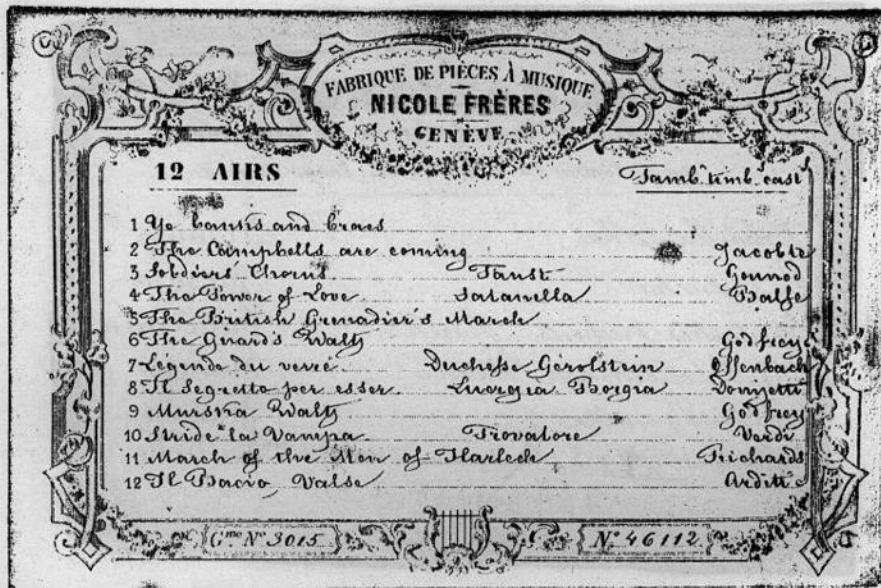 FABRIQUE DE PIÈCES À MUSIQUE
NICOLE FRÈRES
GENÈVE
12 AIRS Tamb. timb. cast.
1 Ye banks and braes
2 The Campbells are coming Jacobte
3 Soldiers' Chorus Faust Gounod
4 The Power of Love Satanella Balfe
5 The British Grenadier's March
6 The Guard's Waltz Godfrey
7 Légende du verre Duchesse Gérolstein Offenbach
8 Il Segretto per esser Lucrgia Borgia Donizetti
9 Murska Waltz Godfrey
10 Stride la Vampa Trovatore Verdi
11 March of the Men of Harlech Richards
12 Il Bacio, Valse Arditi
Gme No 3015. No 46112